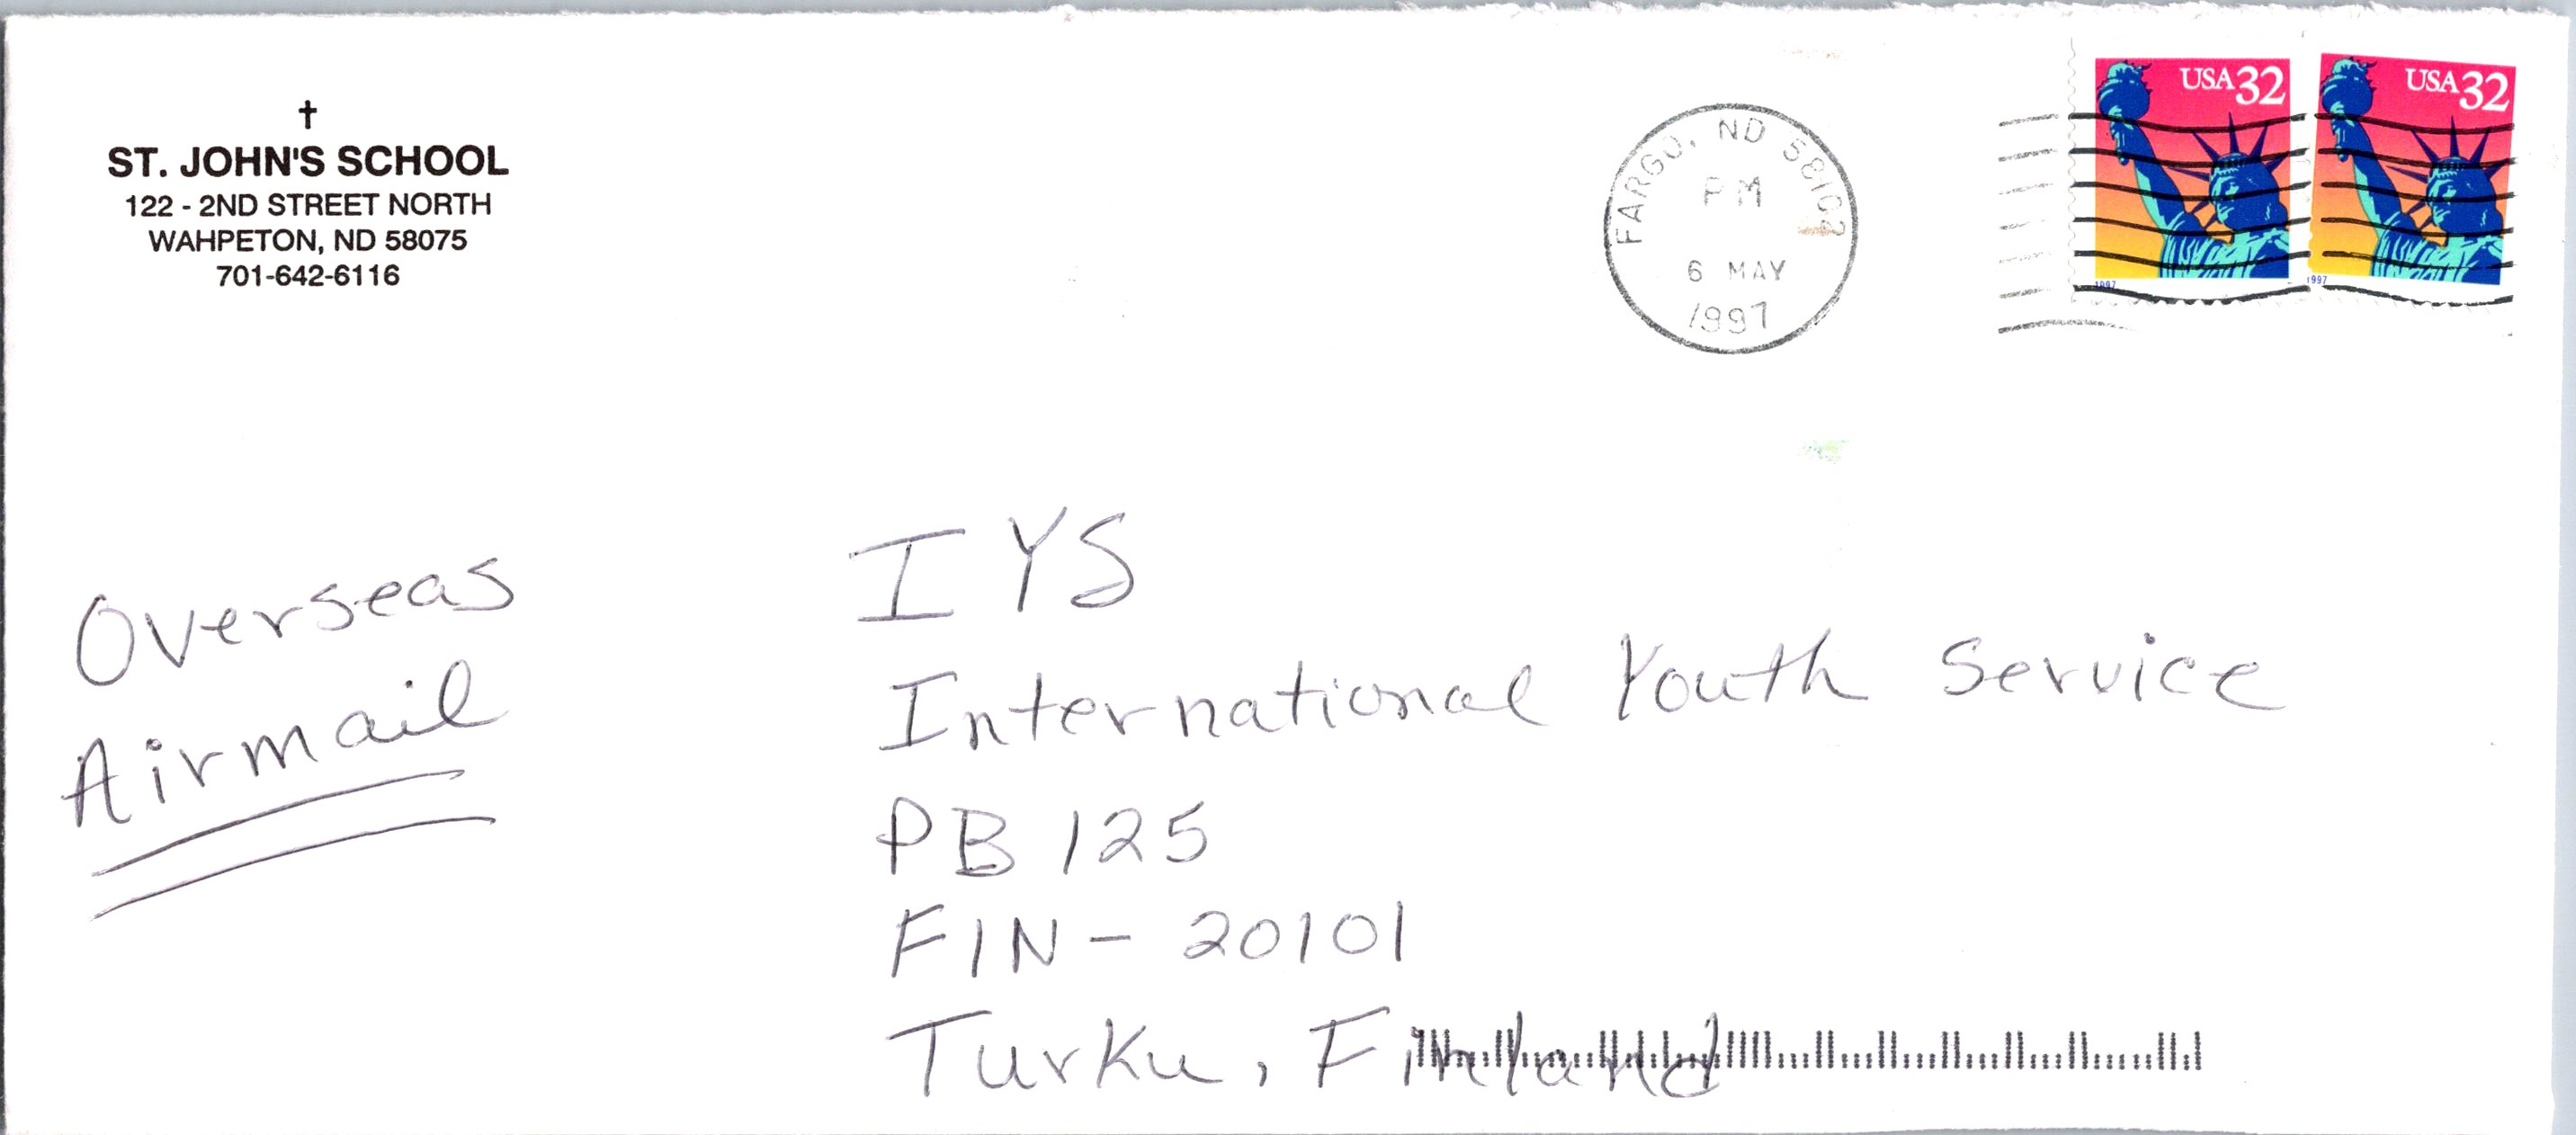 ST. JOHN'S SCHOOL
122 - 2ND STREET NORTH
WAHPETON, ND 58075
701-642-6116
FARGO, ND 58102
PM
6 MAY
1997
USA 32
1997
USA 32
1997
Overseas
Airmail
IYS
International Youth Service
PB 125
FIN - 20101
Turku, Finland